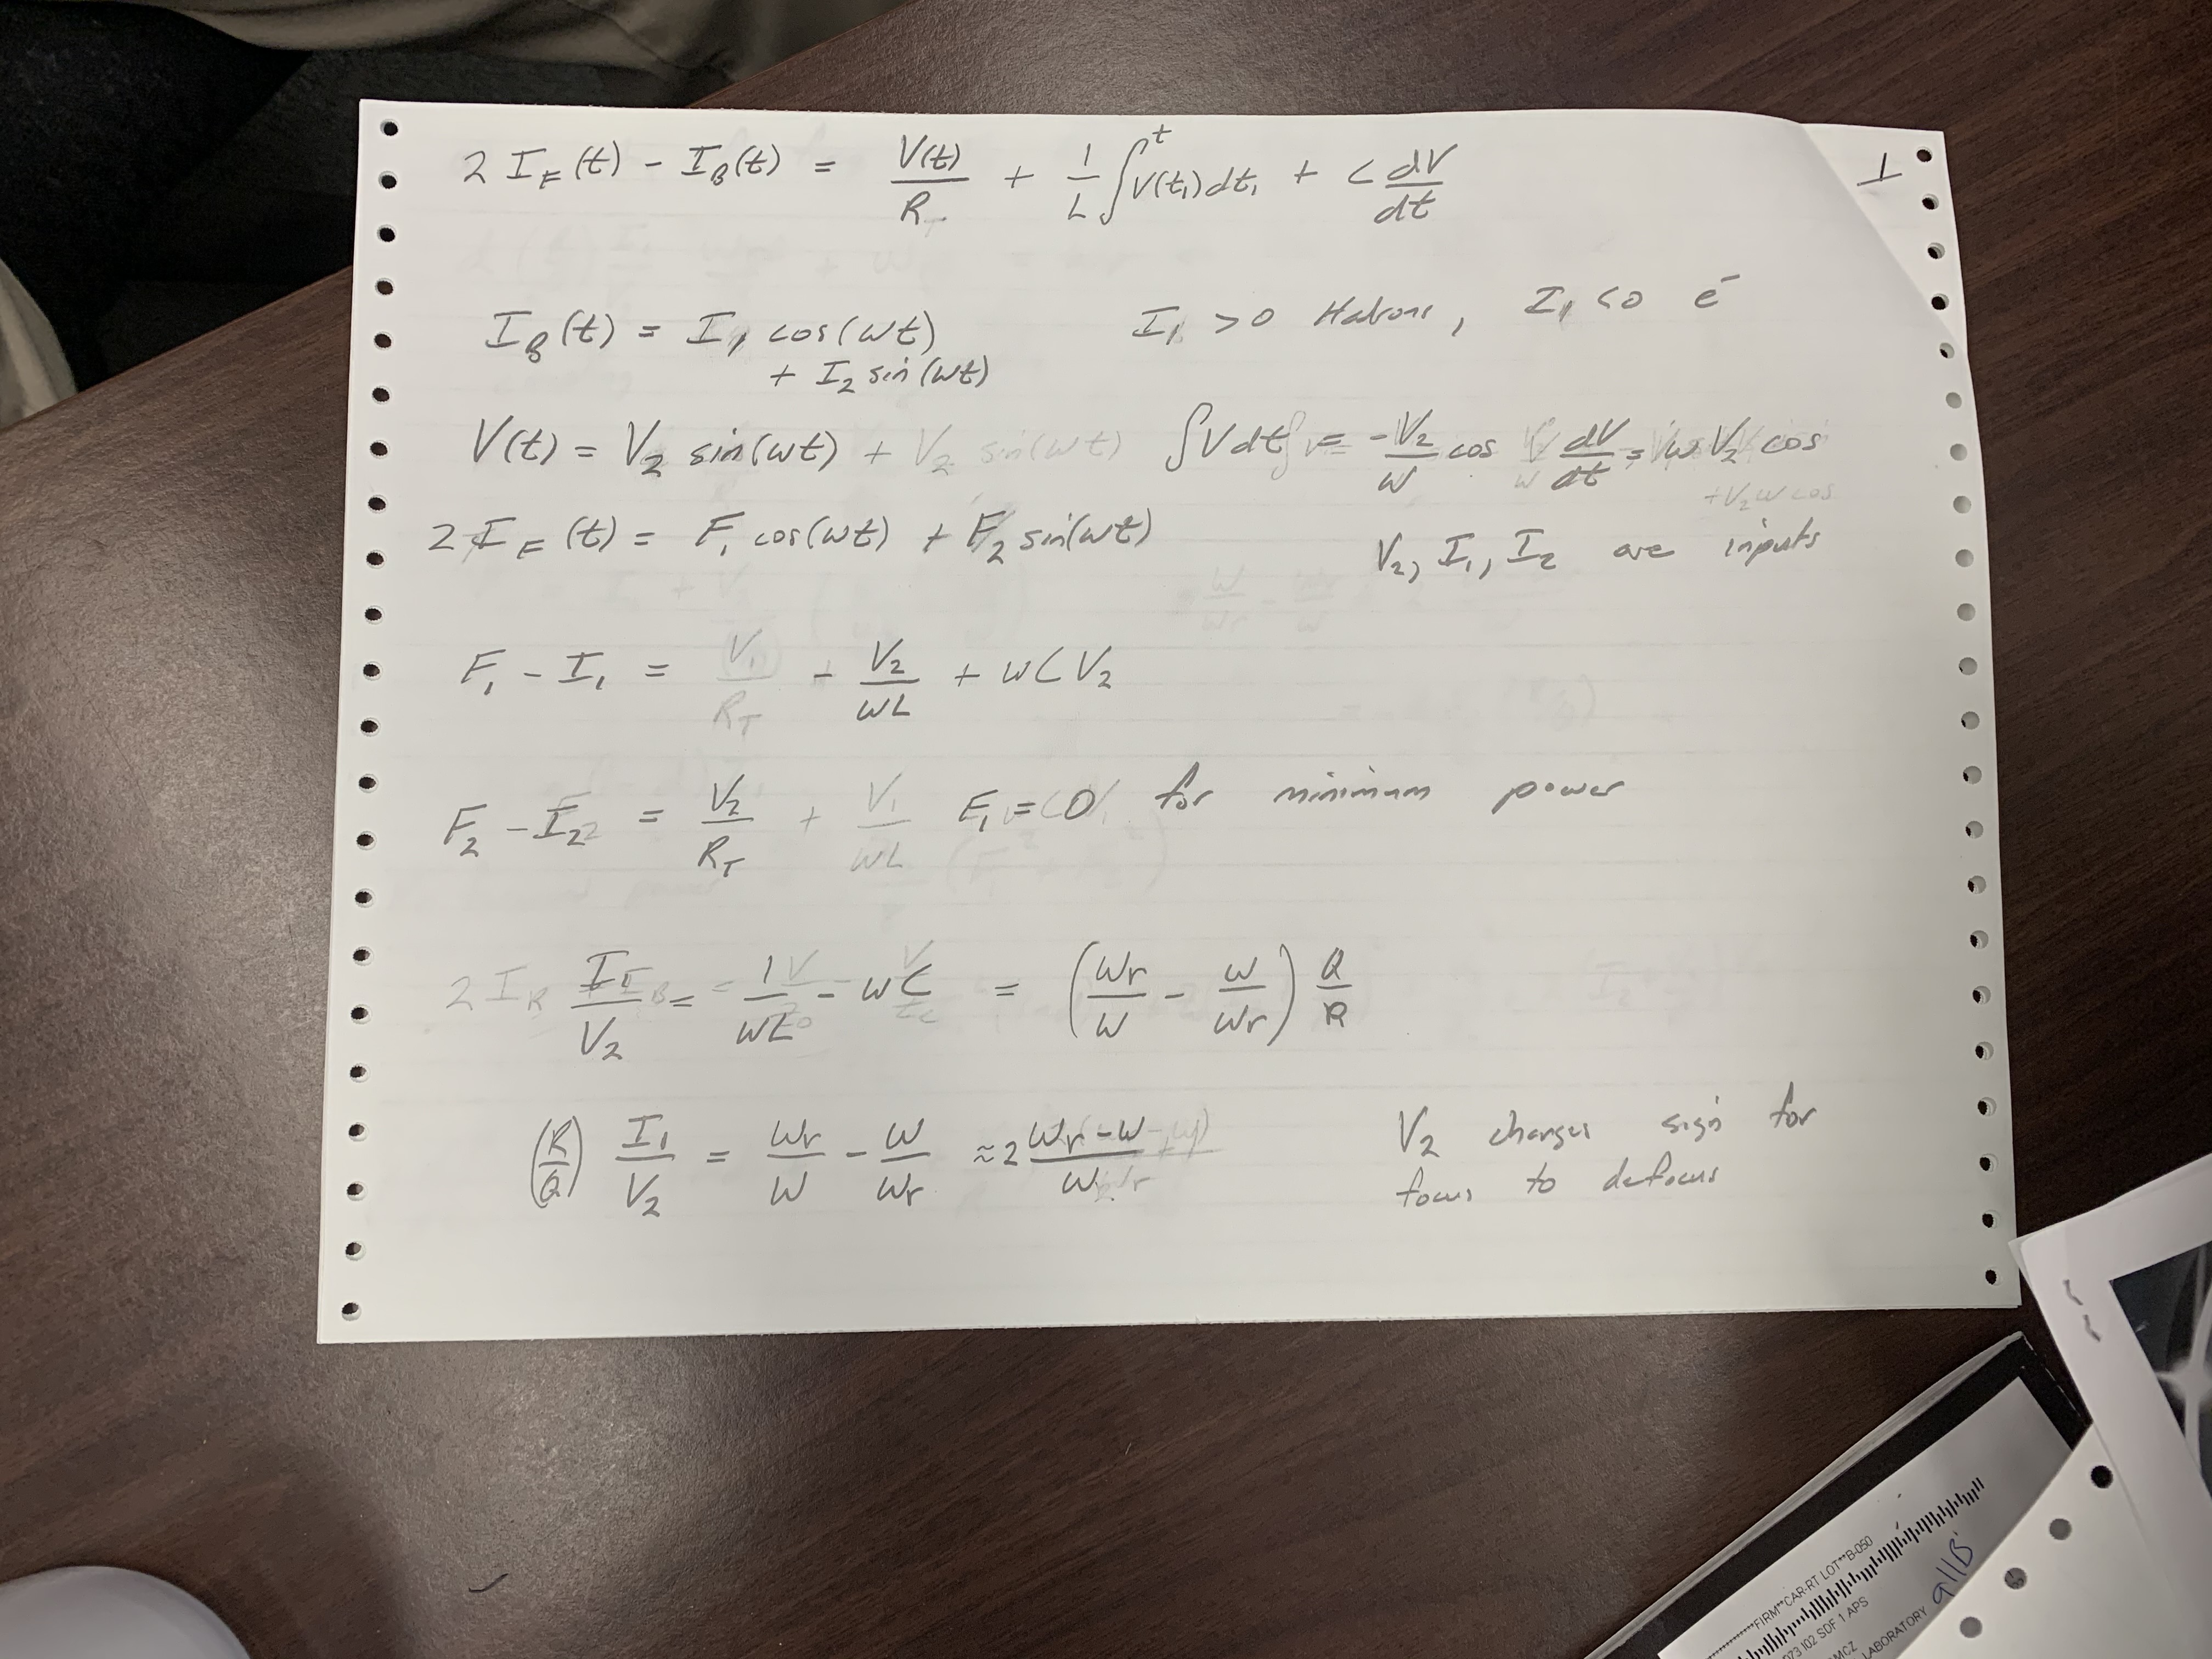 2 I_F(t) - I_B(t) = V(t)/R + 1/L ∫^t V(t₁)dt₁ + C dV/dt
1
I_B(t) = I₁ cos(ωt)
+ I₂ sin(ωt)
I₁ >0 Hadrons, I₁ <0 e⁻
V(t) = V₂ sin(ωt) + V₂ sin(ωt)
∫Vdt = -V₂/ω cos dV/dt = ω V₂ cos
+V₂ω cos
2 I_F(t) = F₁ cos(ωt) + F₂ sin(ωt)
V₂, I₁, I₂ are inputs
F₁ - I₁ = V₁/R_T - V₂/ωL + ωCV₂
F₂ - I₂ = V₂/R_T + V₁/ωL F₁ = 0 for minimum power
I₁/V₂ = 1/ωL - ωC = (ωr/ω - ω/ωr) Q/R
(R/Q) I₁/V₂ = ωr/ω - ω/ωr ≈ 2 (ωr - ω)/ω
V₂ changes sign for
focus to defocus
FIRM**CAR-RT LOT**B-050
I02 SDF 1 APS
LABORATORY
911B